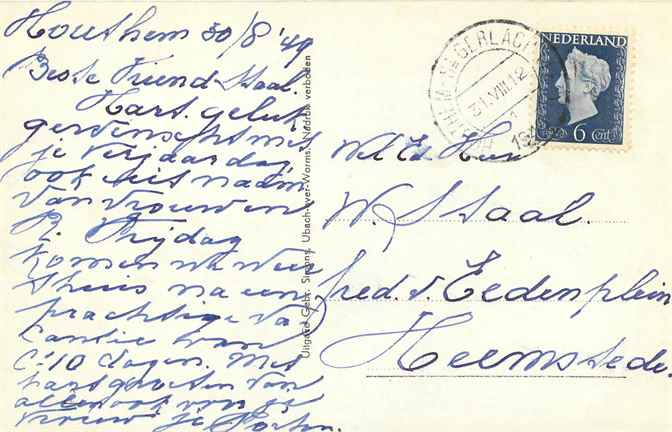 Houthem 30/8 '49
Beste Vriend Staal.
Hart. geluk
gewenscht met
je verjaardag
ook uit naam
van vrouw en
P. Vrijdag
komen we weer
thuis na een
prachtige va
cantie van
10 dagen. Met
hart groeten van
allen ook voor je
vrouw je
Uitgave Gebr. Simons, Ubach over Worms. Nadruk verboden
NEDERLAND
6 Cent
HOUTHEM-ST GERLACH
31.VIII.12
19
Wel Ed Heer
W. Staal.
fred. v. Eedenplein
Heemstede.